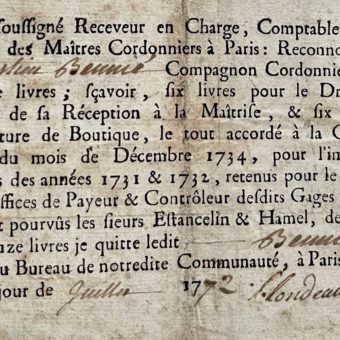 oussigné Receveur en Charge, Comptable
des Maîtres Cordonniers à Paris: Reconno
Bennié Compagnon Cordonnie
e livres; sçavoir, six livres pour le Dr
de sa Réception à la Maîtrise, & six
ture de Boutique, le tout accordé à la C
du mois de Décembre 1734, pour l'in
s des années 1731 & 1732, retenus pour le
ffices de Payeur & Contrôleur desdits Gages
t pourvûs les sieurs Estancelin & Hamel, de
nze livres je quitte ledit Benni
u Bureau de notredite Communauté, à Paris
jour de Juillet 1772